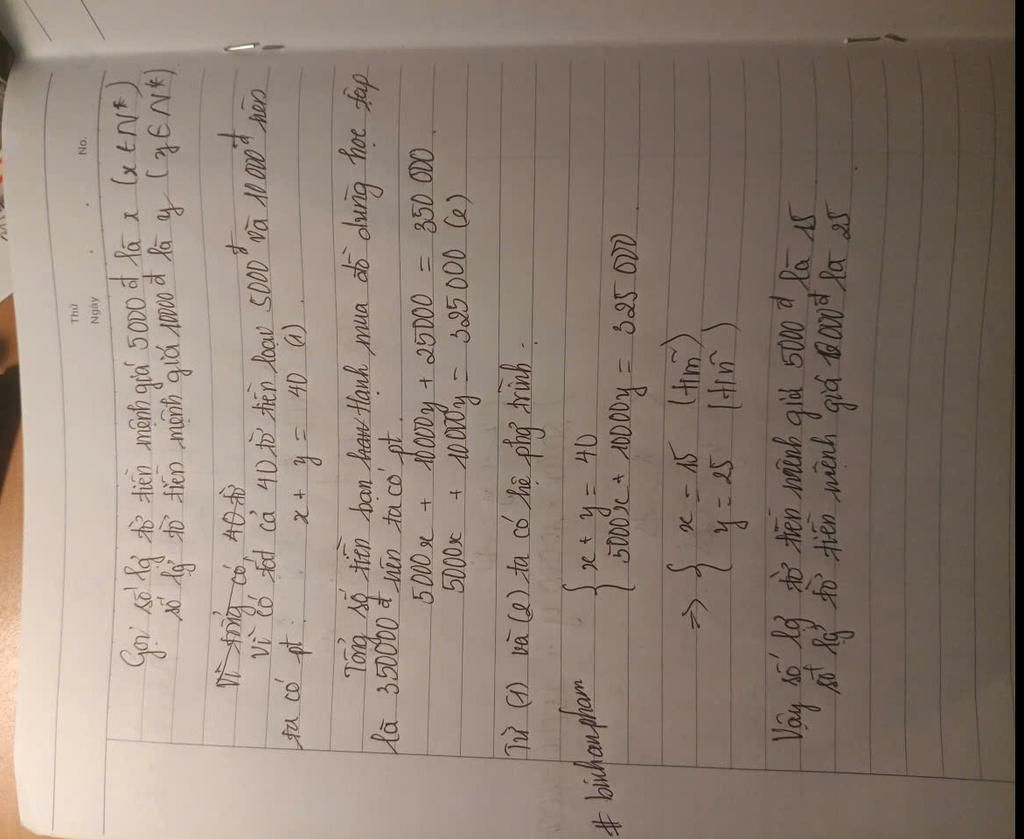 Thứ
Ngày
No.
Gọi số lg tờ tiền mệnh giá 5000đ là x (x ∈ N*)
số lg tờ tiền mệnh giá 10000đ là y (y ∈ N*)
Vì tổng có 40 tờ
Vì có tất cả 40 tờ tiền loại 5000đ và 10000đ nên
ta có pt: x + y = 40 (1)
Tổng số tiền bạn Hạnh mua đồ dùng học tập
là 350000đ nên ta có pt
5000x + 10000y + 25000 = 350 000
5000x + 10000y = 325 000 (2)
Từ (1) và (2) ta có hệ phg trình:
{ x + y = 40
5000x + 10000y = 325 000
# binhanpham
=> { x = 15 (t/m)
y = 25 (t/m)
Vậy số lg tờ tiền mệnh giá 5000đ là 15
số lg tờ tiền mệnh giá 10000đ là 25